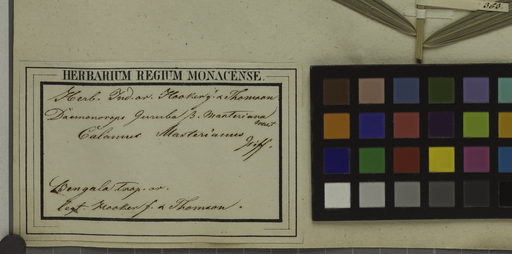 HERBARIUM REGIUM MONACENSE.
Herb. Ind. or. Hooker f. & Thomson
Daemonorops Guruba β. Masteriana
Calamus Masterianus
Griff.
Bengala trop. or.
legt Hooker f. & Thomson.